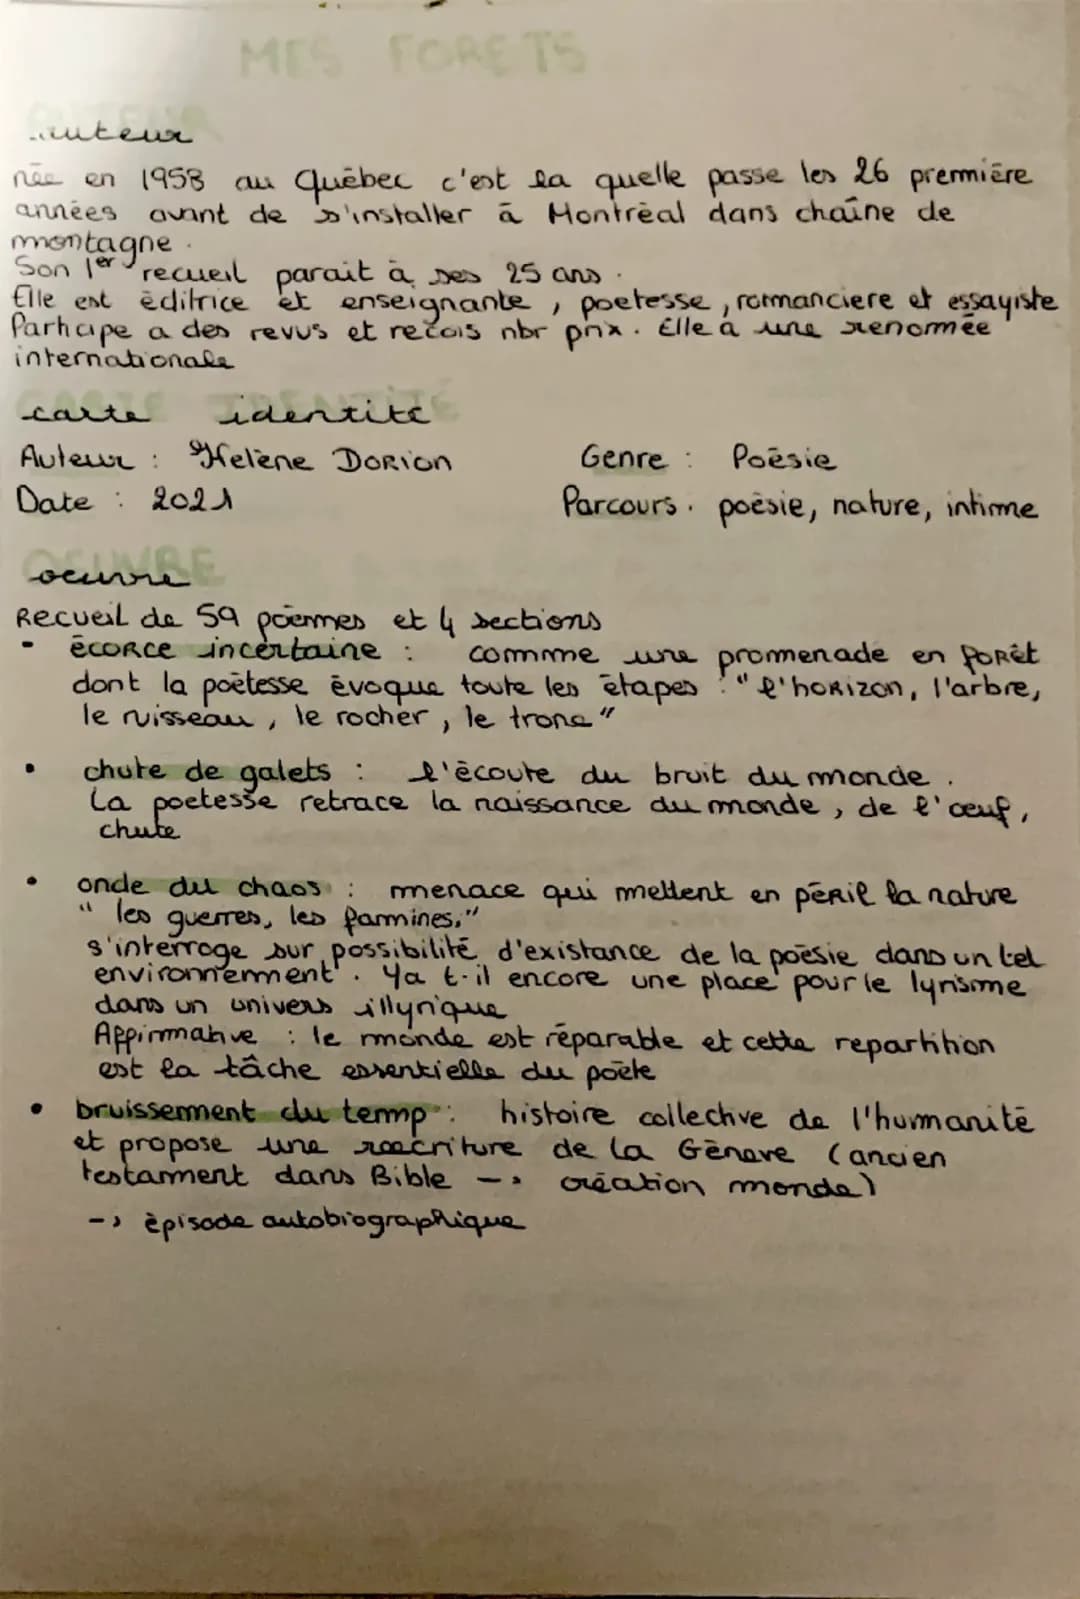 MES FORETS
AUTEUR
auteur
née en 1958 au Québec c'est la quelle passe les 26 premmière
années avant de s'installer à Montréal dans chaîne de
montagne.
Son 1er recueil parait à ses 25 ans.
Elle est éditrice et enseignante, poetesse, romanciere et essayiste
Participe a des revus et reçois nbr prix. Elle a une renomée
internationale
CARTE IDENTITÉ
carte identité
Auteur : Helène DORION Genre : Poésie
Date : 2021 Parcours. poésie, nature, intime
OEUVRE
oeuvre
Recueil de 59 poèmes et 4 sections
• écorce incertaine : comme une promenade en forêt
dont la poètesse évoque toute les étapes : "l'horizon, l'arbre,
le ruisseau, le rocher, le tronc"
• chute de galets : l'écoute du bruit du monde.
La poetesse retrace la naissance du monde, de l'œuf,
chute
• onde du chaos : menace qui mettent en péril la nature
"les guerres, les famines."
s'interroge sur possibilité d'existance de la poèsie dans un tel
environnement. Ya t-il encore une place pour le lyrisme
dans un univers illyrique
Affirmative : le monde est réparable et cette repartition
est la tâche essentielle du poète
• bruissement du temp : histoire collective de l'humanité
et propose une reecriture de la Génere (ancien
testament dans Bible -> création monde)
-> épisode autobiographique